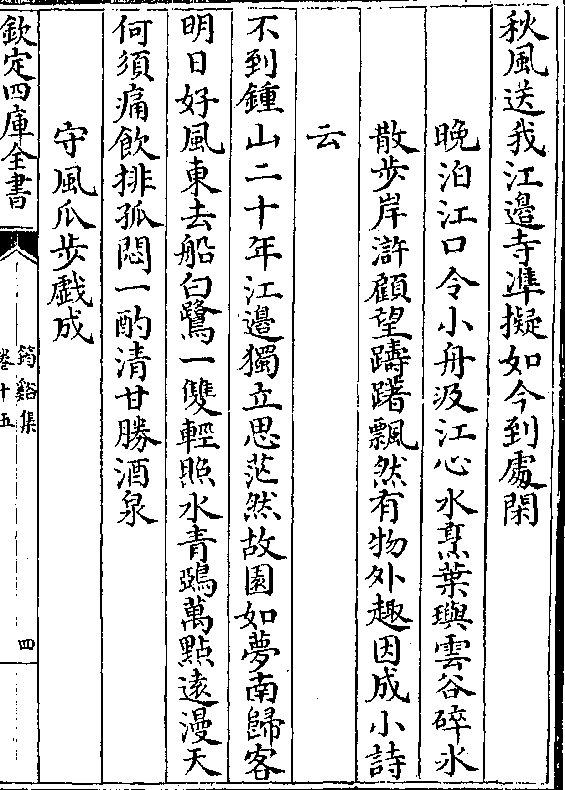 秋風送我江邉寺準擬如今到處閑
晚泊江口令小舟汲江心水烹葉璵雲谷碎水
散步岸滸顧望躊躇飄然有物外趣因成小詩
云
不到鍾山二十年江邉獨立思茫然故園如夢南歸客
明日好風東去船白鷺一雙輕照水青鵶萬點遠漫天
何須痛飲排孤悶一酌清甘勝酒泉
守風瓜步戲成
欽定四庫全書
筠谿集
卷十五
四